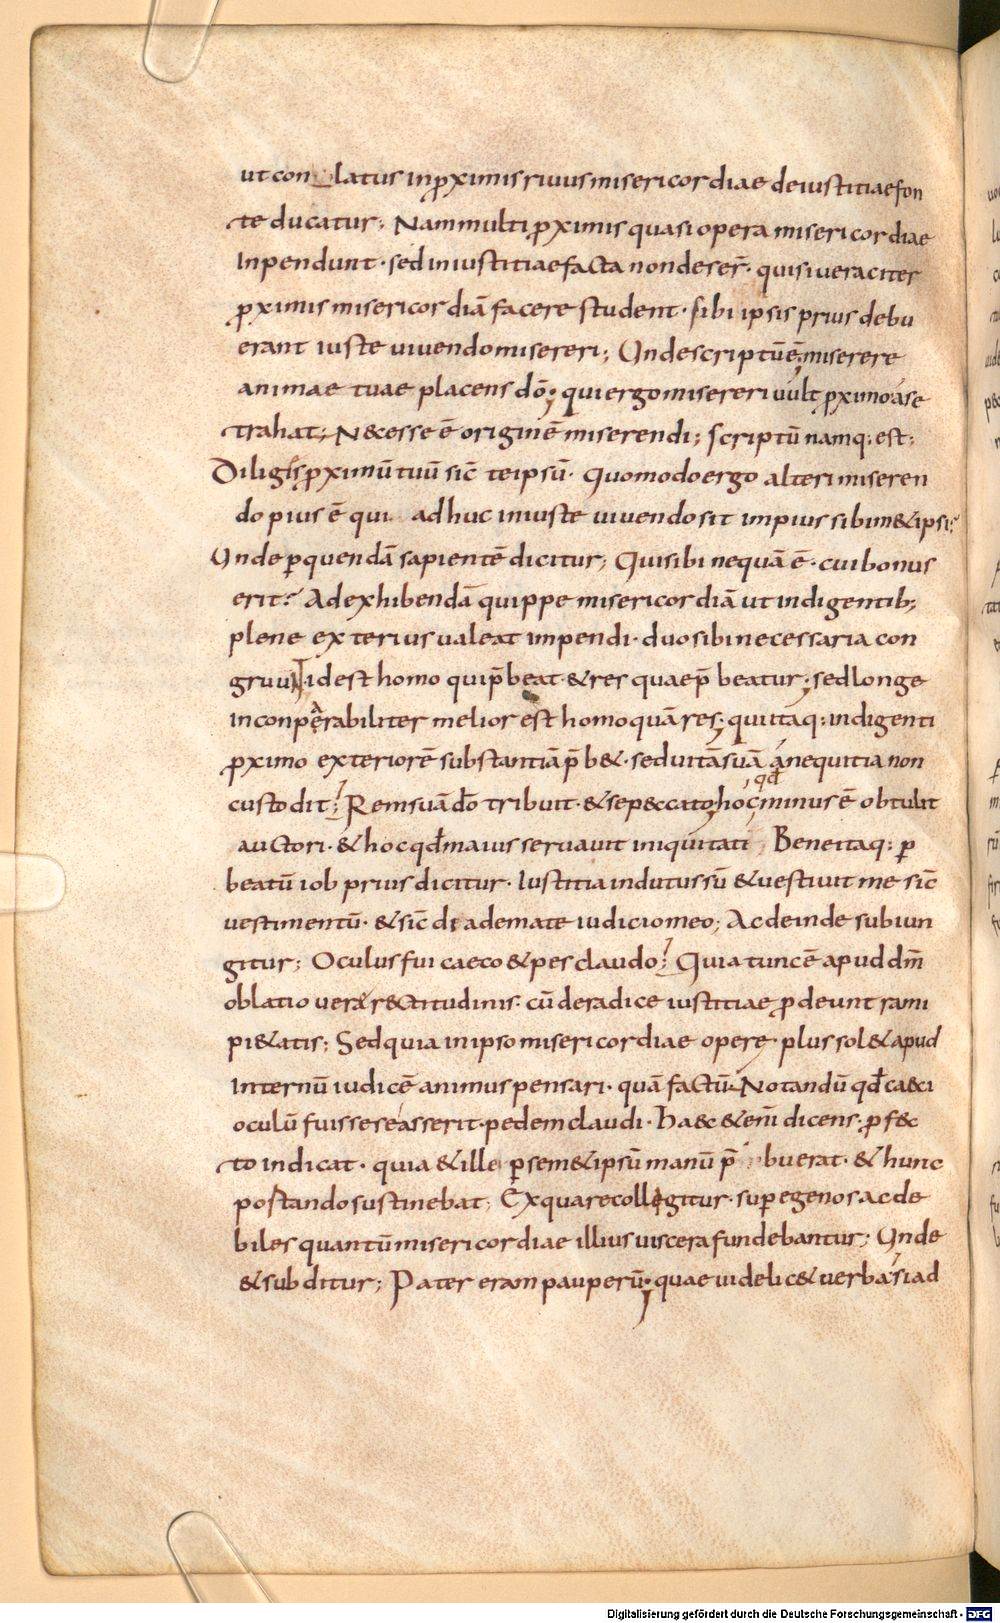 ut con latus in ꝓximis riuus misericordiae de iustitiae fon
te ducatur; Nam multi ꝓximis quasi opera misericordiae
inpendunt · sed iniustitiae facta non deser̄ · qui si ueraciter
ꝓximis misericordiā facere student · sibi ipsis prius debu
erant iuste uiuendo misereri; Unde scriptū ē; miserere
animae tuae placens dō; qui ergo misereri uult ꝓximo á se
trahat; Necesse ē originē miserendi; scriptū namq; est;
Diligis ꝓximū tuū sic̄ te ipsū · Quomodo ergo alteri miseren
do pius ē qui adhuc iniuste uiuendo sit impius sibim&ipsi?
Unde ꝑ quendā sapientē dicitur; Qui sibi nequā ē · cui bonus
erit? Ad exhibendā quippe misericordiā ut indigentib;
plene exterius ualeat impendi · duo sibi necessaria con
gruunt · id est homo qui p̄beat · & res quae p̄beatur; sed longe
inconperabiliter melior est homo quā res; qui itaq; indigenti
ꝓximo exteriorē substantiā p̄b& · sed uitā suā á nequitia non
custodit? Rem suā dō tribuit · & se peccato; hoc qđ minus ē obtulit
auctori · & hoc qđ maius seruauit iniquitati Bene itaq; ꝑ
beatū iob prius dicitur · Iustitia indutus sū & uestiuit me sic̄
uestimentū · & sic̄ diademate iudicio meo; Ac deinde subiun
gitur; Oculus fui caeco & pes claudo? Quia tunc ē apud dm̄
oblatio uera r&titudinis · cū de radice iustitiae ꝓdeunt rami
pi&atis; Sed quia in ipso misericordiae opere plus sol& apud
internū iudicē animus pensari · quā factū · Notandū qđ caeci
oculū fuisse se ásserit · pedem claudi · Haec &enī dicens · ꝓfec
to indicat · quia & ille ꝑ sem&ipsū manū p̄buerat · & hunc
postando sustinebat; Ex qua re collegitur · suꝑ egenos ac de
biles quantū misericordiae illius uiscera fundebantur; Unde
& subditur; Pater eram pauperū; quae uidelic& uerba si ad
Digitalisierung gefördert durch die Deutsche Forschungsgemeinschaft - DFG